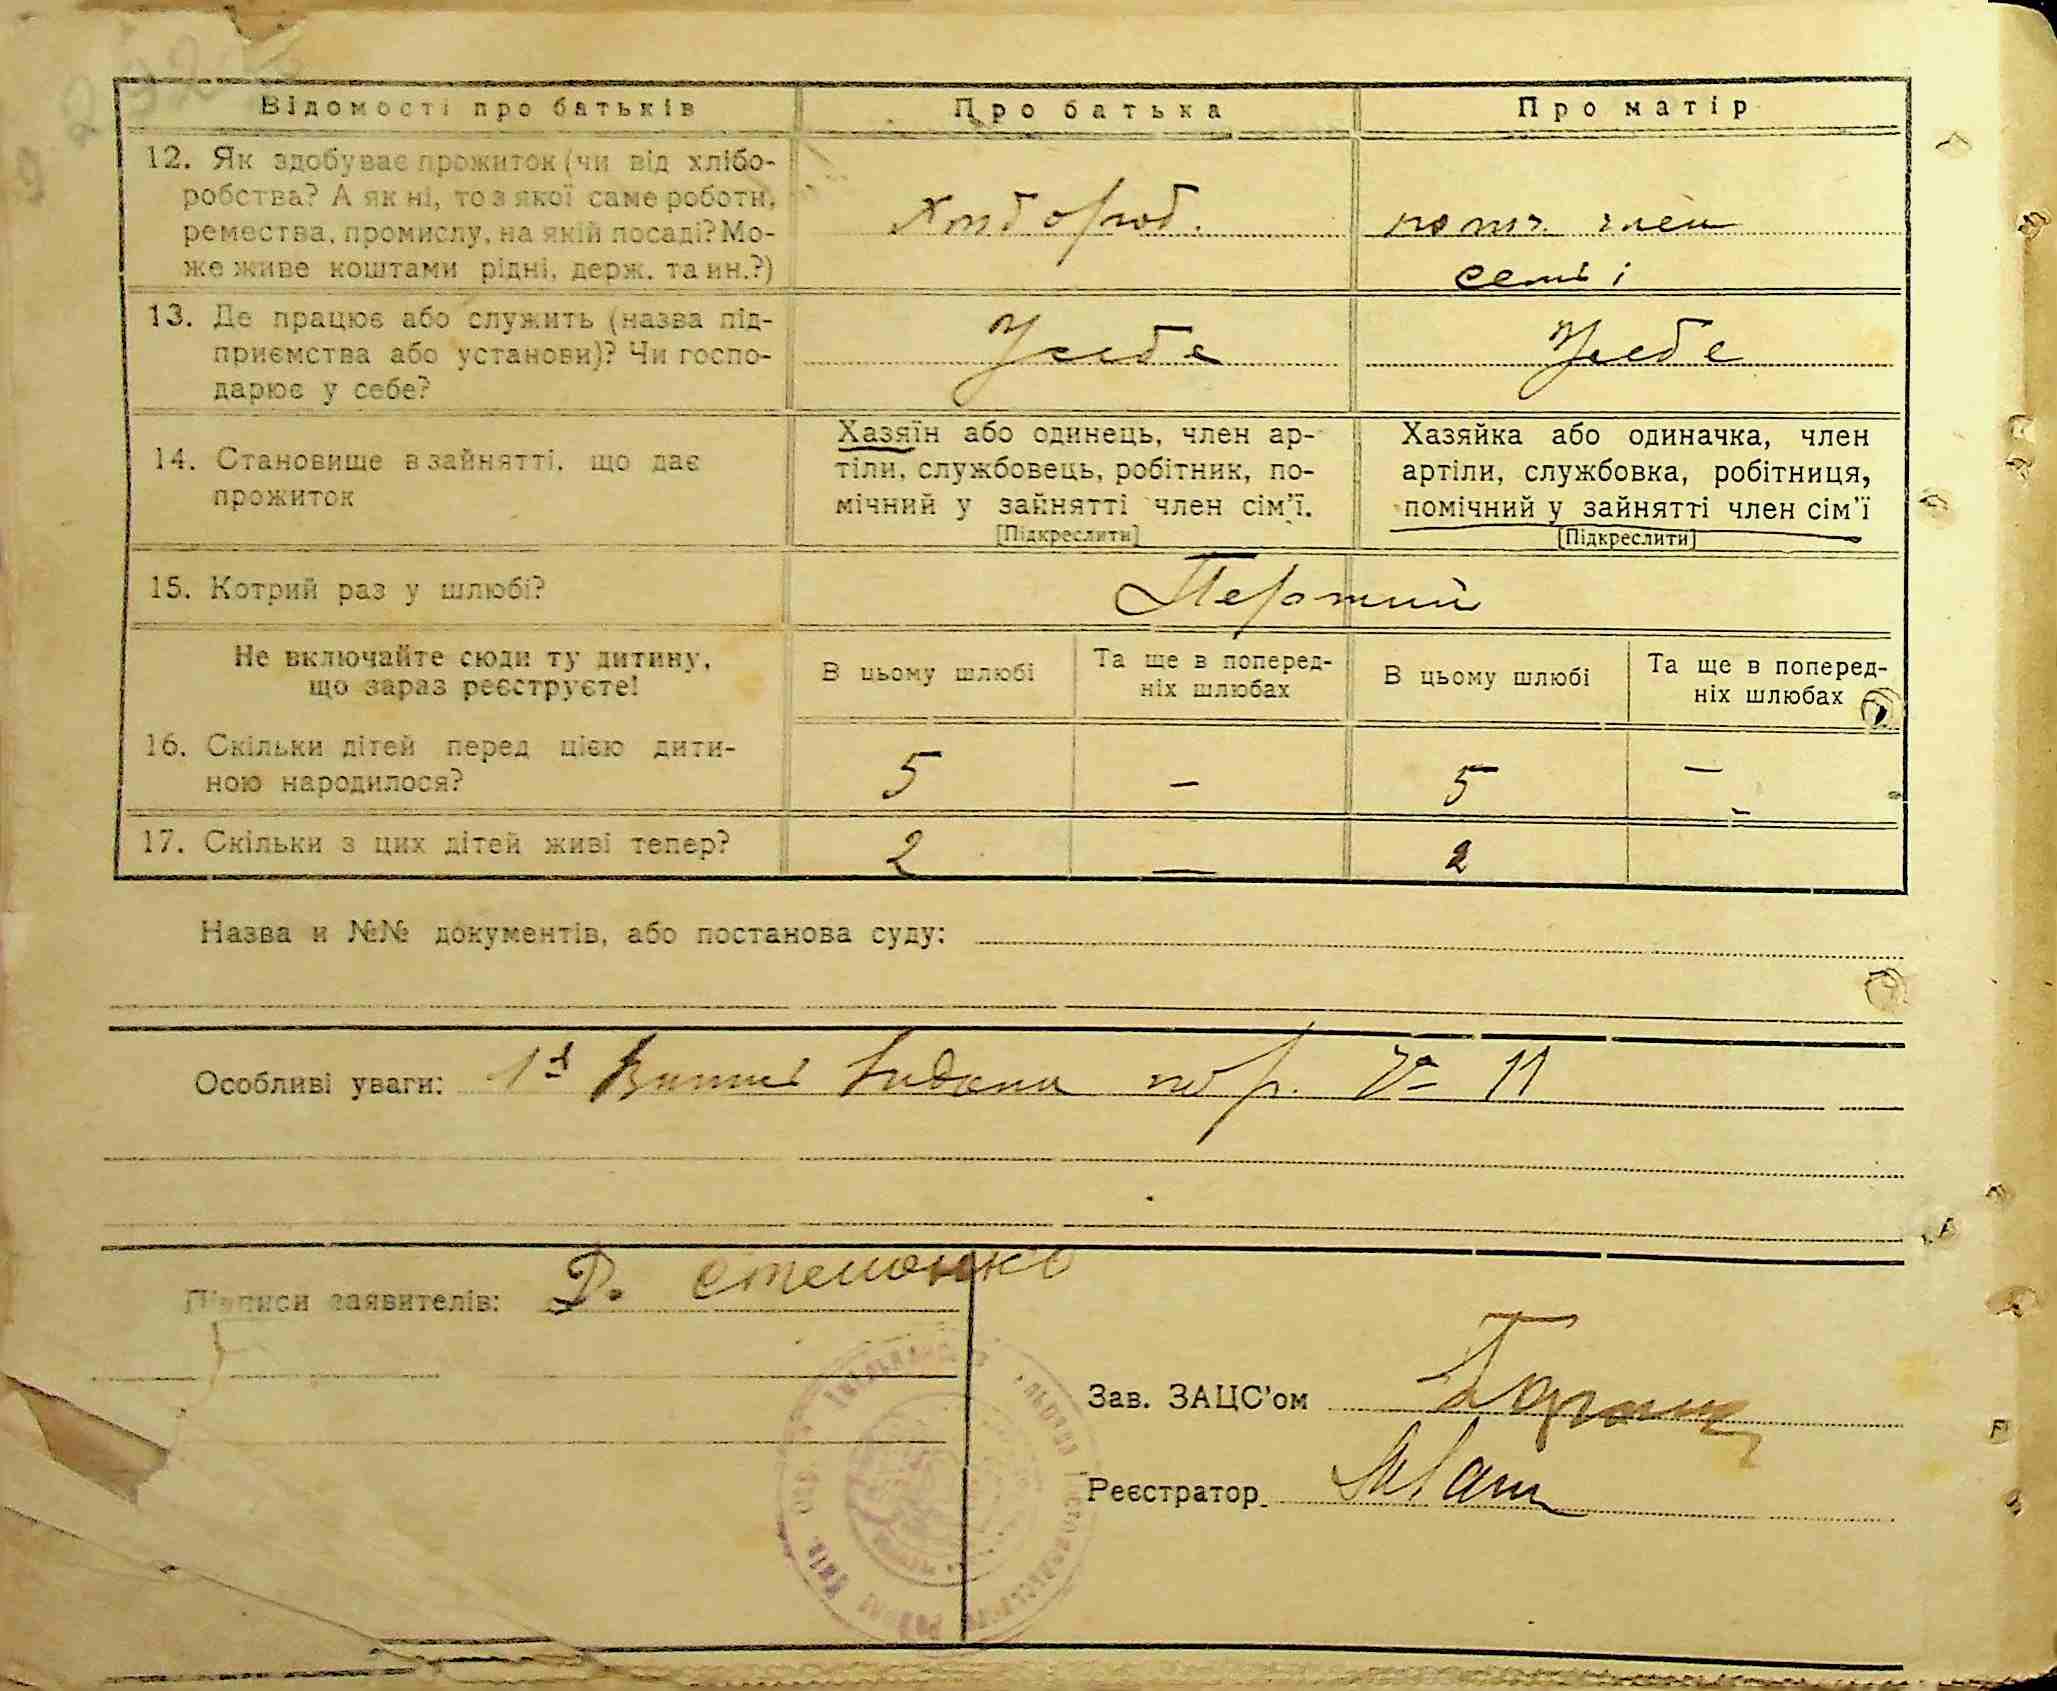 Відомості про батьків
Про батька
Про матір
12. Як здобуває прожиток (чи від хлібо-
робства? А як ні, то з якої саме роботи,
ремества, промислу, на якій посаді? Мо-
же живе коштами рідні, держ. та ин.?)
член
семьі
13. Де працює або служить (назва під-
приємства або установи)? Чи госпо-
дарює у себе?
У себе
У себе
14. Становище в зайнятті, що дає
прожиток
Хазяїн або одинець, член ар-
тіли, службовець, робітник, по-
мічний у зайнятті член сім'ї.
[Підкреслити]
Хазяйка або одиначка, член
артіли, службовка, робітниця,
помічний у зайнятті член сім'ї
[Підкреслити]
15. Котрий раз у шлюбі?
Перший
Не включайте сюди ту дитину,
що зараз реєструєте!
В цьому шлюбі
Та ще в поперед-
ніх шлюбах
В цьому шлюбі
Та ще в поперед-
ніх шлюбах
16. Скільки дітей перед цією дити-
ною народилося?
5
–
5
–
17. Скільки з цих дітей живі тепер?
2
—
2
Назва и №№ документів, або постанова суду:
Особливі уваги: р. № 11
Підписи заявителів: Д.
Зав. ЗАЦС'ом
Реєстратор